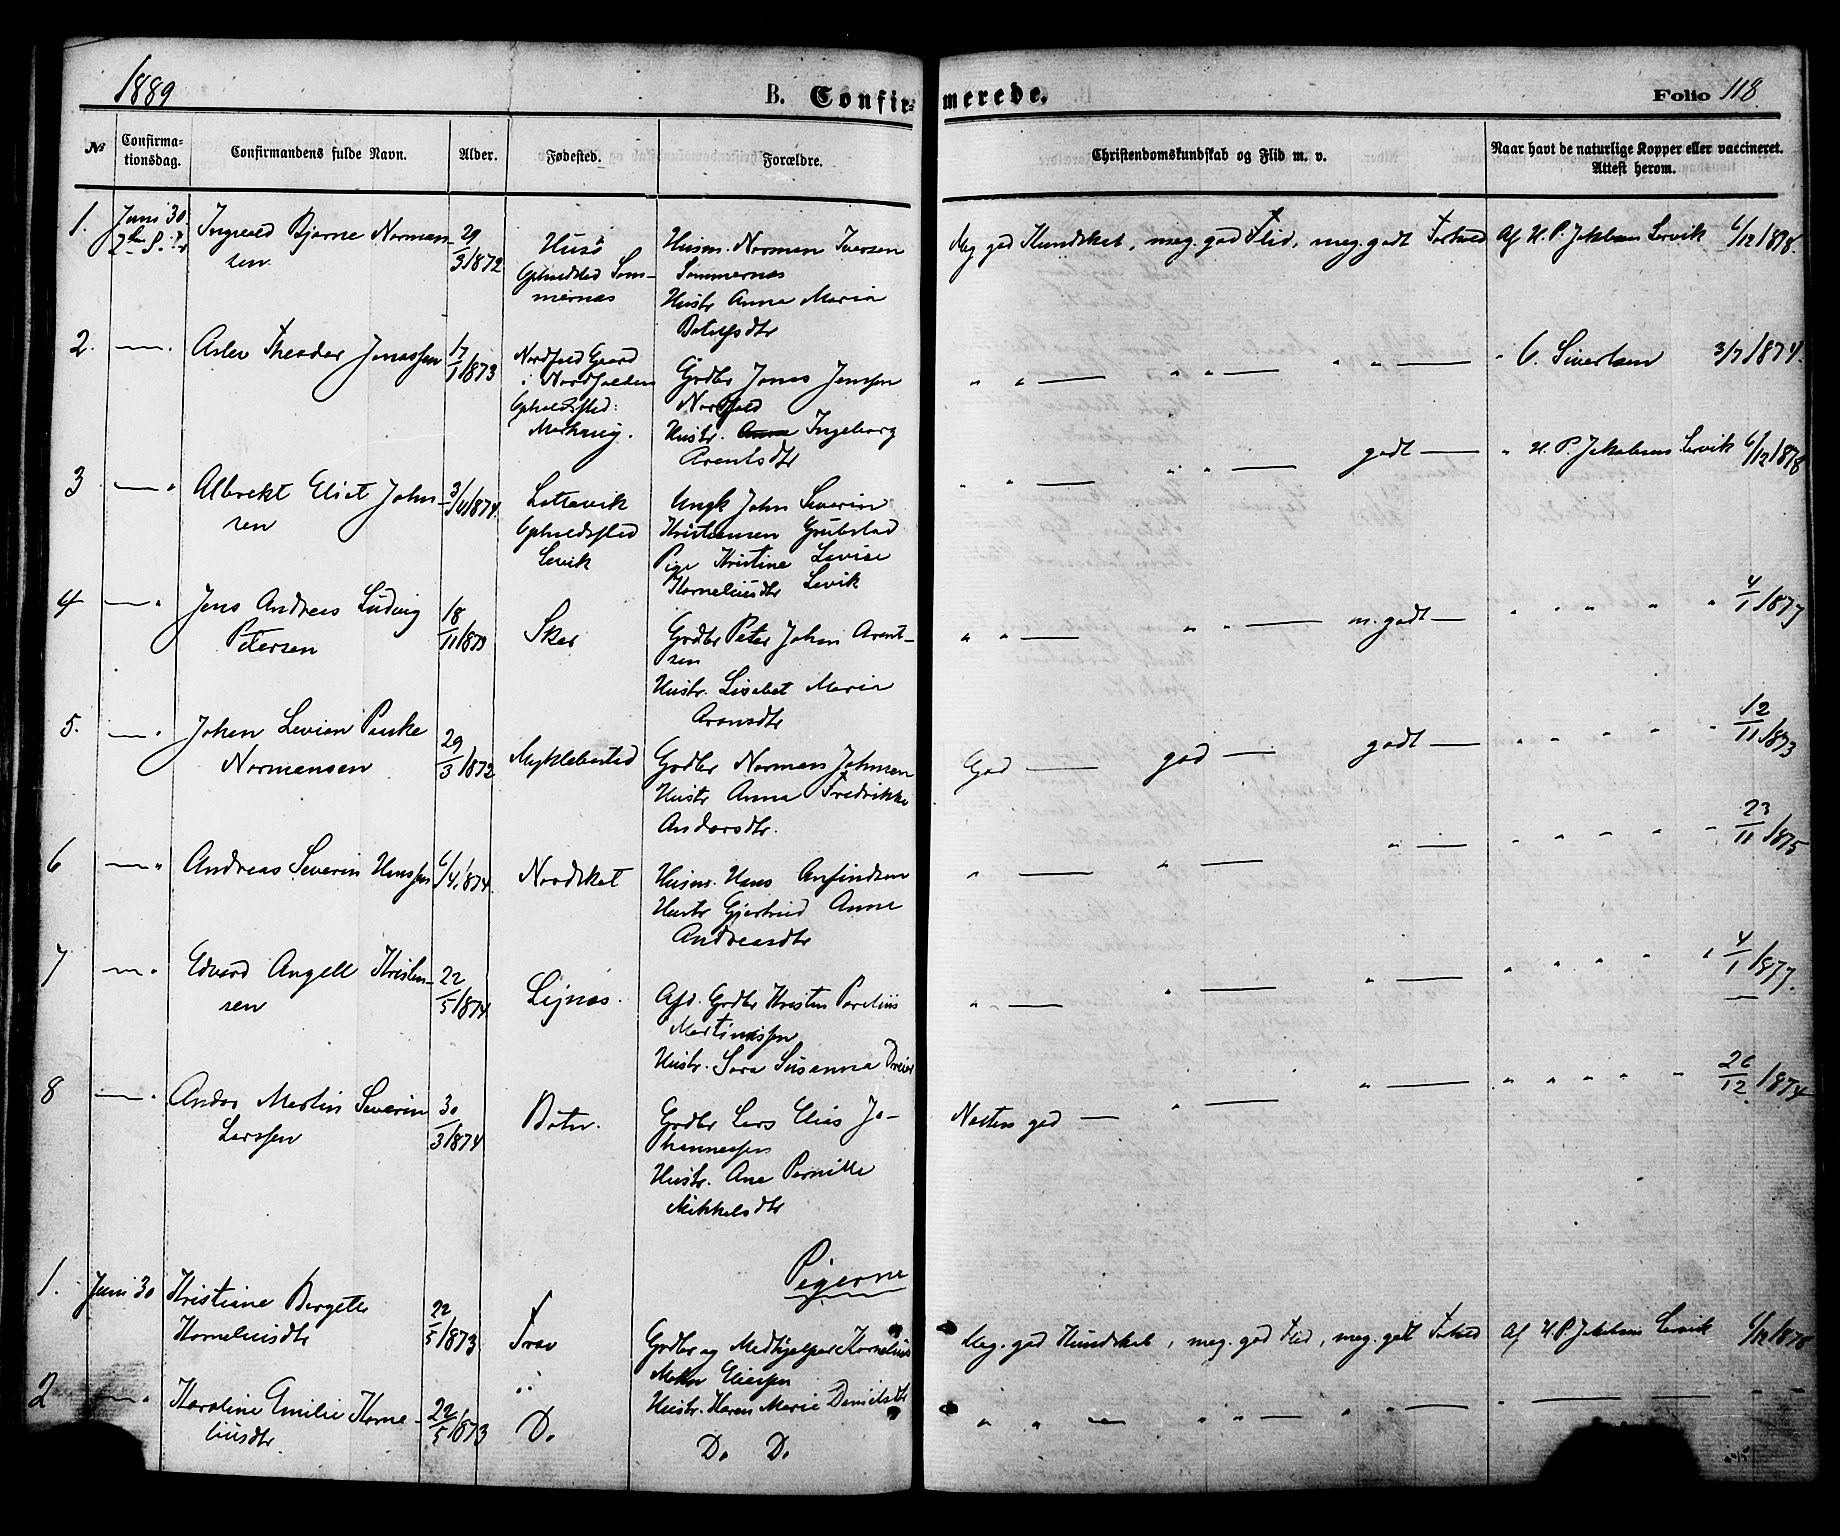 1889
B. Confirmerede.
Folio 118
№
Confirmationsdag.
Confirmandens fulde Navn.
Alder.
Fødested.
Forældre.
Christendomskundskab og Flid m. v.
Naar havt de naturlige Kopper eller vaccineret. Attest herom.
1. Juni 30
Ingvald Bjarne Normansen
29/3/1872
Husö
Opholdsted Sommernæs
Husm. Norman Iversen
Sommernæs
Hustr Anna Maria
Botolfsdtr
Meg god Kundskab, meg. god Flid, meg. godt Forhold
Af H. P. Jakobsen Lervik 6/12 1878.
2. — " Aslev Theodor Jonassen
17/1/1873
Nordfold Gaard
i Nordfolden
Opholdsted:
Grdbr Jonas Jenssen
Nordfold
Hustr. Anna Ingeborg
Arentsdtr
" " — " " — " " —
" C. Sivertsen 3/7 1874.
3 — " Albrekt Eliot Johnsen
3/11/1874.
Opholdsted
Levik
Ungk John Severin
Kristiansen Grubstad
Pige Kristine Lovise
Korneliusdtr Levik
" " — " " — godt —
" H. P. Jakobsen Lervik 6/12 1878
4 — " Jens Andreas Ludvig
Petersen
18/11/1873
Skar
Grdbr Peter Johan Arentsen
Hustr. Lisabet Maria
Aronsdtr
" " — " " — m. godt —
" " " " " 4/1 1877
5. — " Johan Levien Punke
Normansen
29/3/1872
Myklebostad
Grdbr Norman Johnsen
Hustr Anna Fredrikke
Andorsdtr.
God — god — godt —
" " " " " 12/11 1873
6 — " Andreas Severin Hanssen
6/4/1874
Nordskot
Husm. Hans Anfindsen
Hustr Gjertrud Anne
Andreasdtr
" — " — " —
" " " " " 23/11 1875
7 — " Edvard Angell Kristensen
22/5/1874
Lejnæs.
Afd. Grdbr Kristen Parelius
Martinussen
Hustr. Sara Susanna Dreier
" — " — " —
" " " " " 4/1 1877.
8 — " Andor Martin Severin
Larssen
30/3/1874
Botn.
Grdbr Lars Elias Johannessen
Hustr. Ane Pernille
Mikkelsdtr
Næsten god — " — " —
" " " " " 26/12 1874
Pigerne
1. Juni 30 Kristiane Bergete
Korneliusdtr
22/5/1873
Grdbr og Medhjelper Kornelius
Eliassen
Hustr. Karen Marie Danielsdtr
Meg. god Kundskab, meg. god Flid, meg. godt Forhold
Af H P. Jakobsen Lervik 6/12 1878
2 — " Karoline Emilie Korneliusdtr.
22/5/1873
D.
D. D.
" " — " " — " " —
" — — — —